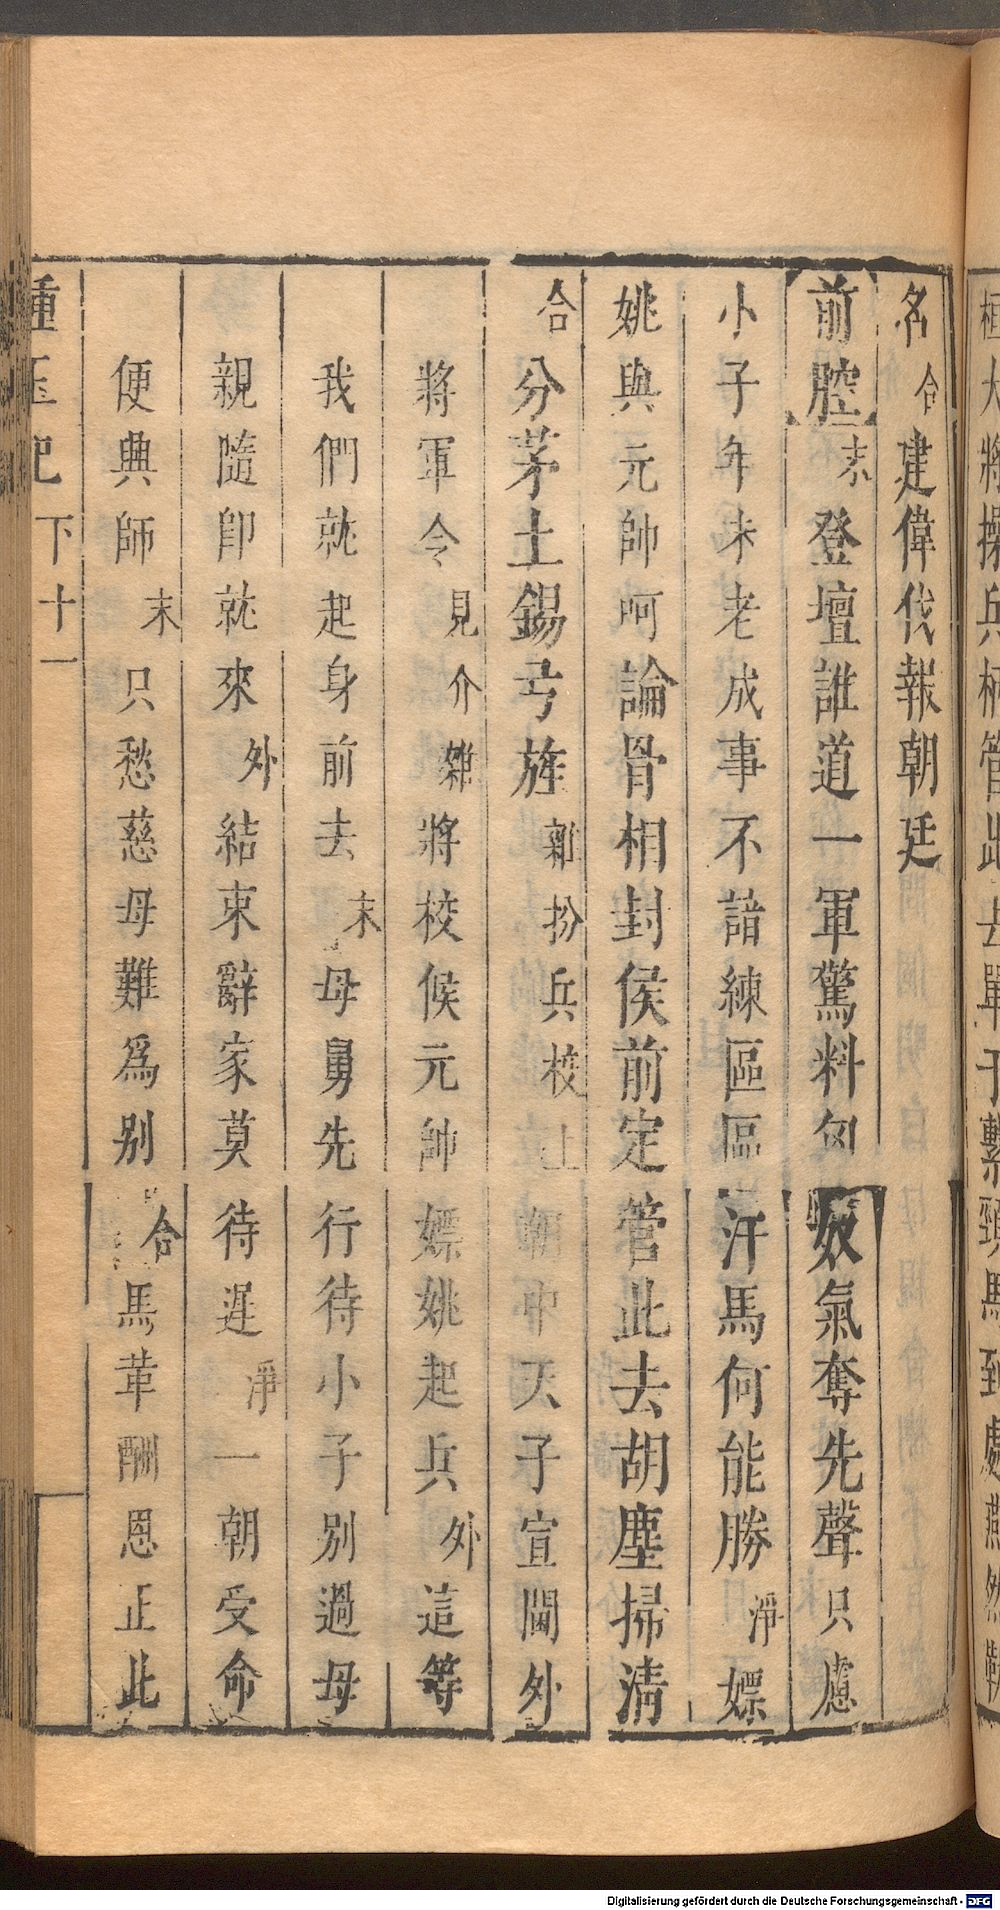 名合建偉伐報朝廷
前腔末登壇誰道一軍驚料匈奴氣奪先聲只慮
小子年未老成事不諳練區區汗馬何能勝淨嫖
姚與元帥呵論骨相封侯前定管此去胡塵掃淸
合分茅土錫弓旌雜扮兵校上朝中天子宣閫外
將軍令見介雜將校候元帥嫖姚起兵外這等
我們就起身前去末母舅先行待小子別過母
親隨卽就來外結束辭家莫待遲淨一朝受命
便典師末只愁慈母難爲別合馬革酬恩正此
種玉記 下十一
大將操兵柄管此去單于繫頸馬到處燕然勒
Digitalisierung gefördert durch die Deutsche Forschungsgemeinschaft - DFG